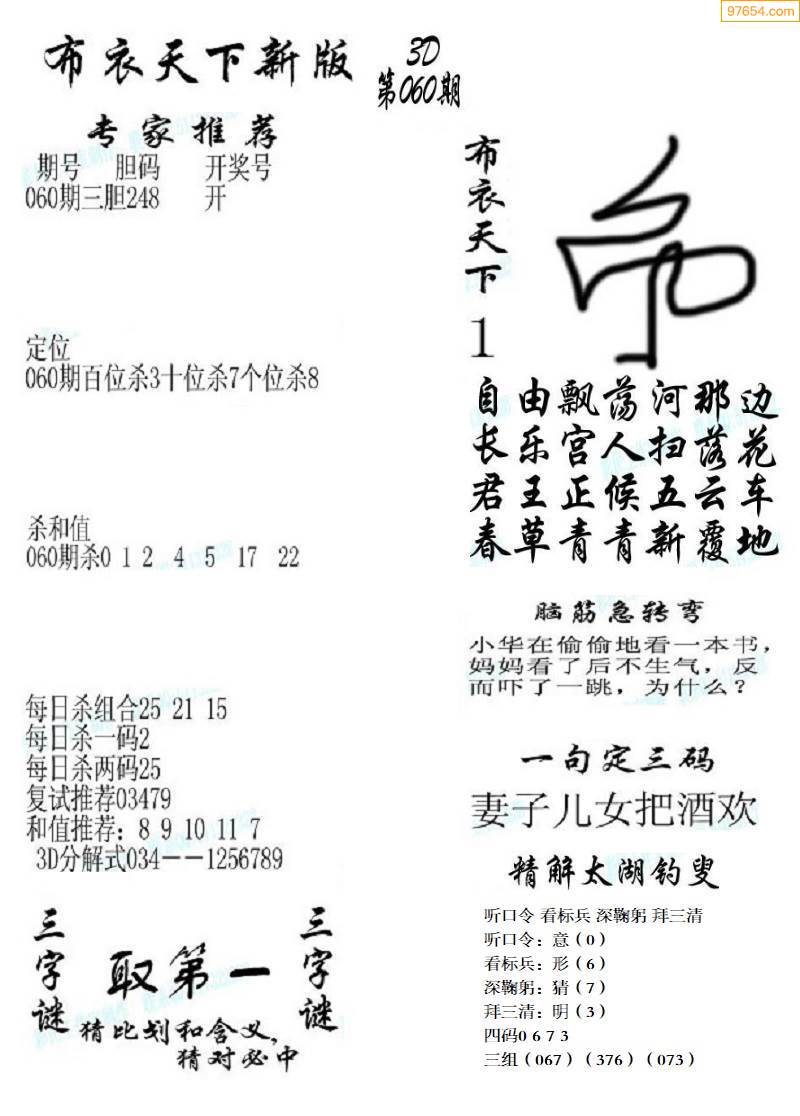 97654.com
布衣天下新版
3D
第060期
专家推荐
期号 胆码 开奖号
060期三胆248 开
定位
060期百位杀3十位杀7个位杀8
杀和值
060期杀0 1 2 4 5 17 22
每日杀组合25 21 15
每日杀一码2
每日杀两码25
复试推荐03479
和值推荐：8 9 10 11 7
3D分解式034——1256789
三字谜
取第一
三字谜
猜比划和含义，
猜对必中
布衣天下
1
自由飘荡河那边
长乐宫人扫落花
君王正候五云车
春草青青新覆地
脑筋急转弯
小华在偷偷地看一本书，
妈妈看了后不生气，反
而吓了一跳，为什么？
一句定三码
妻子儿女把酒欢
精解太湖钓叟
听口令 看标兵 深鞠躬 拜三清
听口令：意（0）
看标兵：形（6）
深鞠躬：猜（7）
拜三清：明（3）
四码0 6 7 3
三组（067）（376）（073）